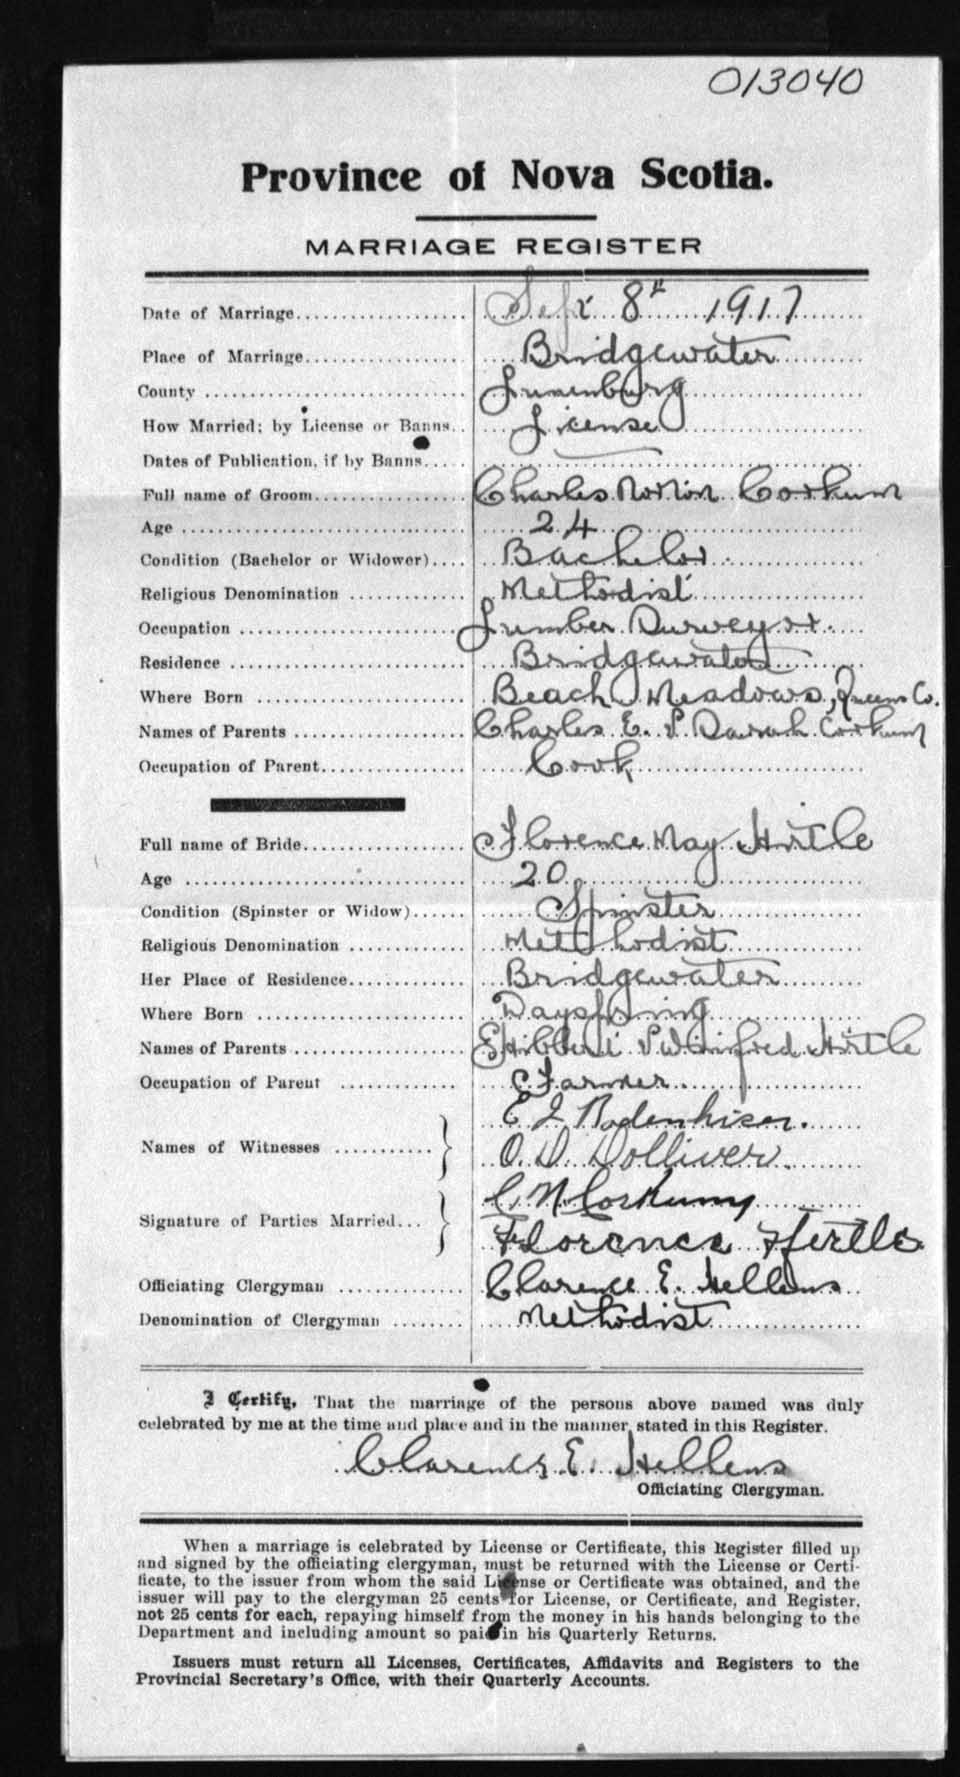 013040
Province of Nova Scotia.
MARRIAGE REGISTER
Date of Marriage Sept 8th 1917
Place of Marriage Bridgewater
County Lunenburg
How Married; by License or Banns License
Dates of Publication, if by Banns
Full name of Groom Charles Norton Corkum
Age 24
Condition (Bachelor or Widower) Bachelor
Religious Denomination Methodist
Occupation Lumber Surveyor
Residence Bridgewater
Where Born Beach Meadows, Queens Co.
Names of Parents Charles E. & Sarah Corkum
Occupation of Parent Cook
Full name of Bride Florence May Hirtle
Age 20
Condition (Spinster or Widow) Spinster
Religious Denomination Methodist
Her Place of Residence Bridgewater
Where Born Dayspring
Names of Parents & Winifred Hirtle
Occupation of Parent Farmer
Names of Witnesses
E J Bodenhiser.
O. D. Dolliver.
Signature of Parties Married
C N Corkum
Florence Hirtle
Officiating Clergyman Clarence E. Hellens
Denomination of Clergyman Methodist
I Certify, That the marriage of the persons above named was duly
celebrated by me at the time and place and in the manner stated in this Register.
Clarence E. Hellens
Officiating Clergyman.
When a marriage is celebrated by License or Certificate, this Register filled up
and signed by the officiating clergyman, must be returned with the License or Certi-
ficate, to the issuer from whom the said License or Certificate was obtained, and the
issuer will pay to the clergyman 25 cents for License, or Certificate, and Register,
not 25 cents for each, repaying himself from the money in his hands belonging to the
Department and including amount so paid in his Quarterly Returns.
Issuers must return all Licenses, Certificates, Affidavits and Registers to the
Provincial Secretary's Office, with their Quarterly Accounts.